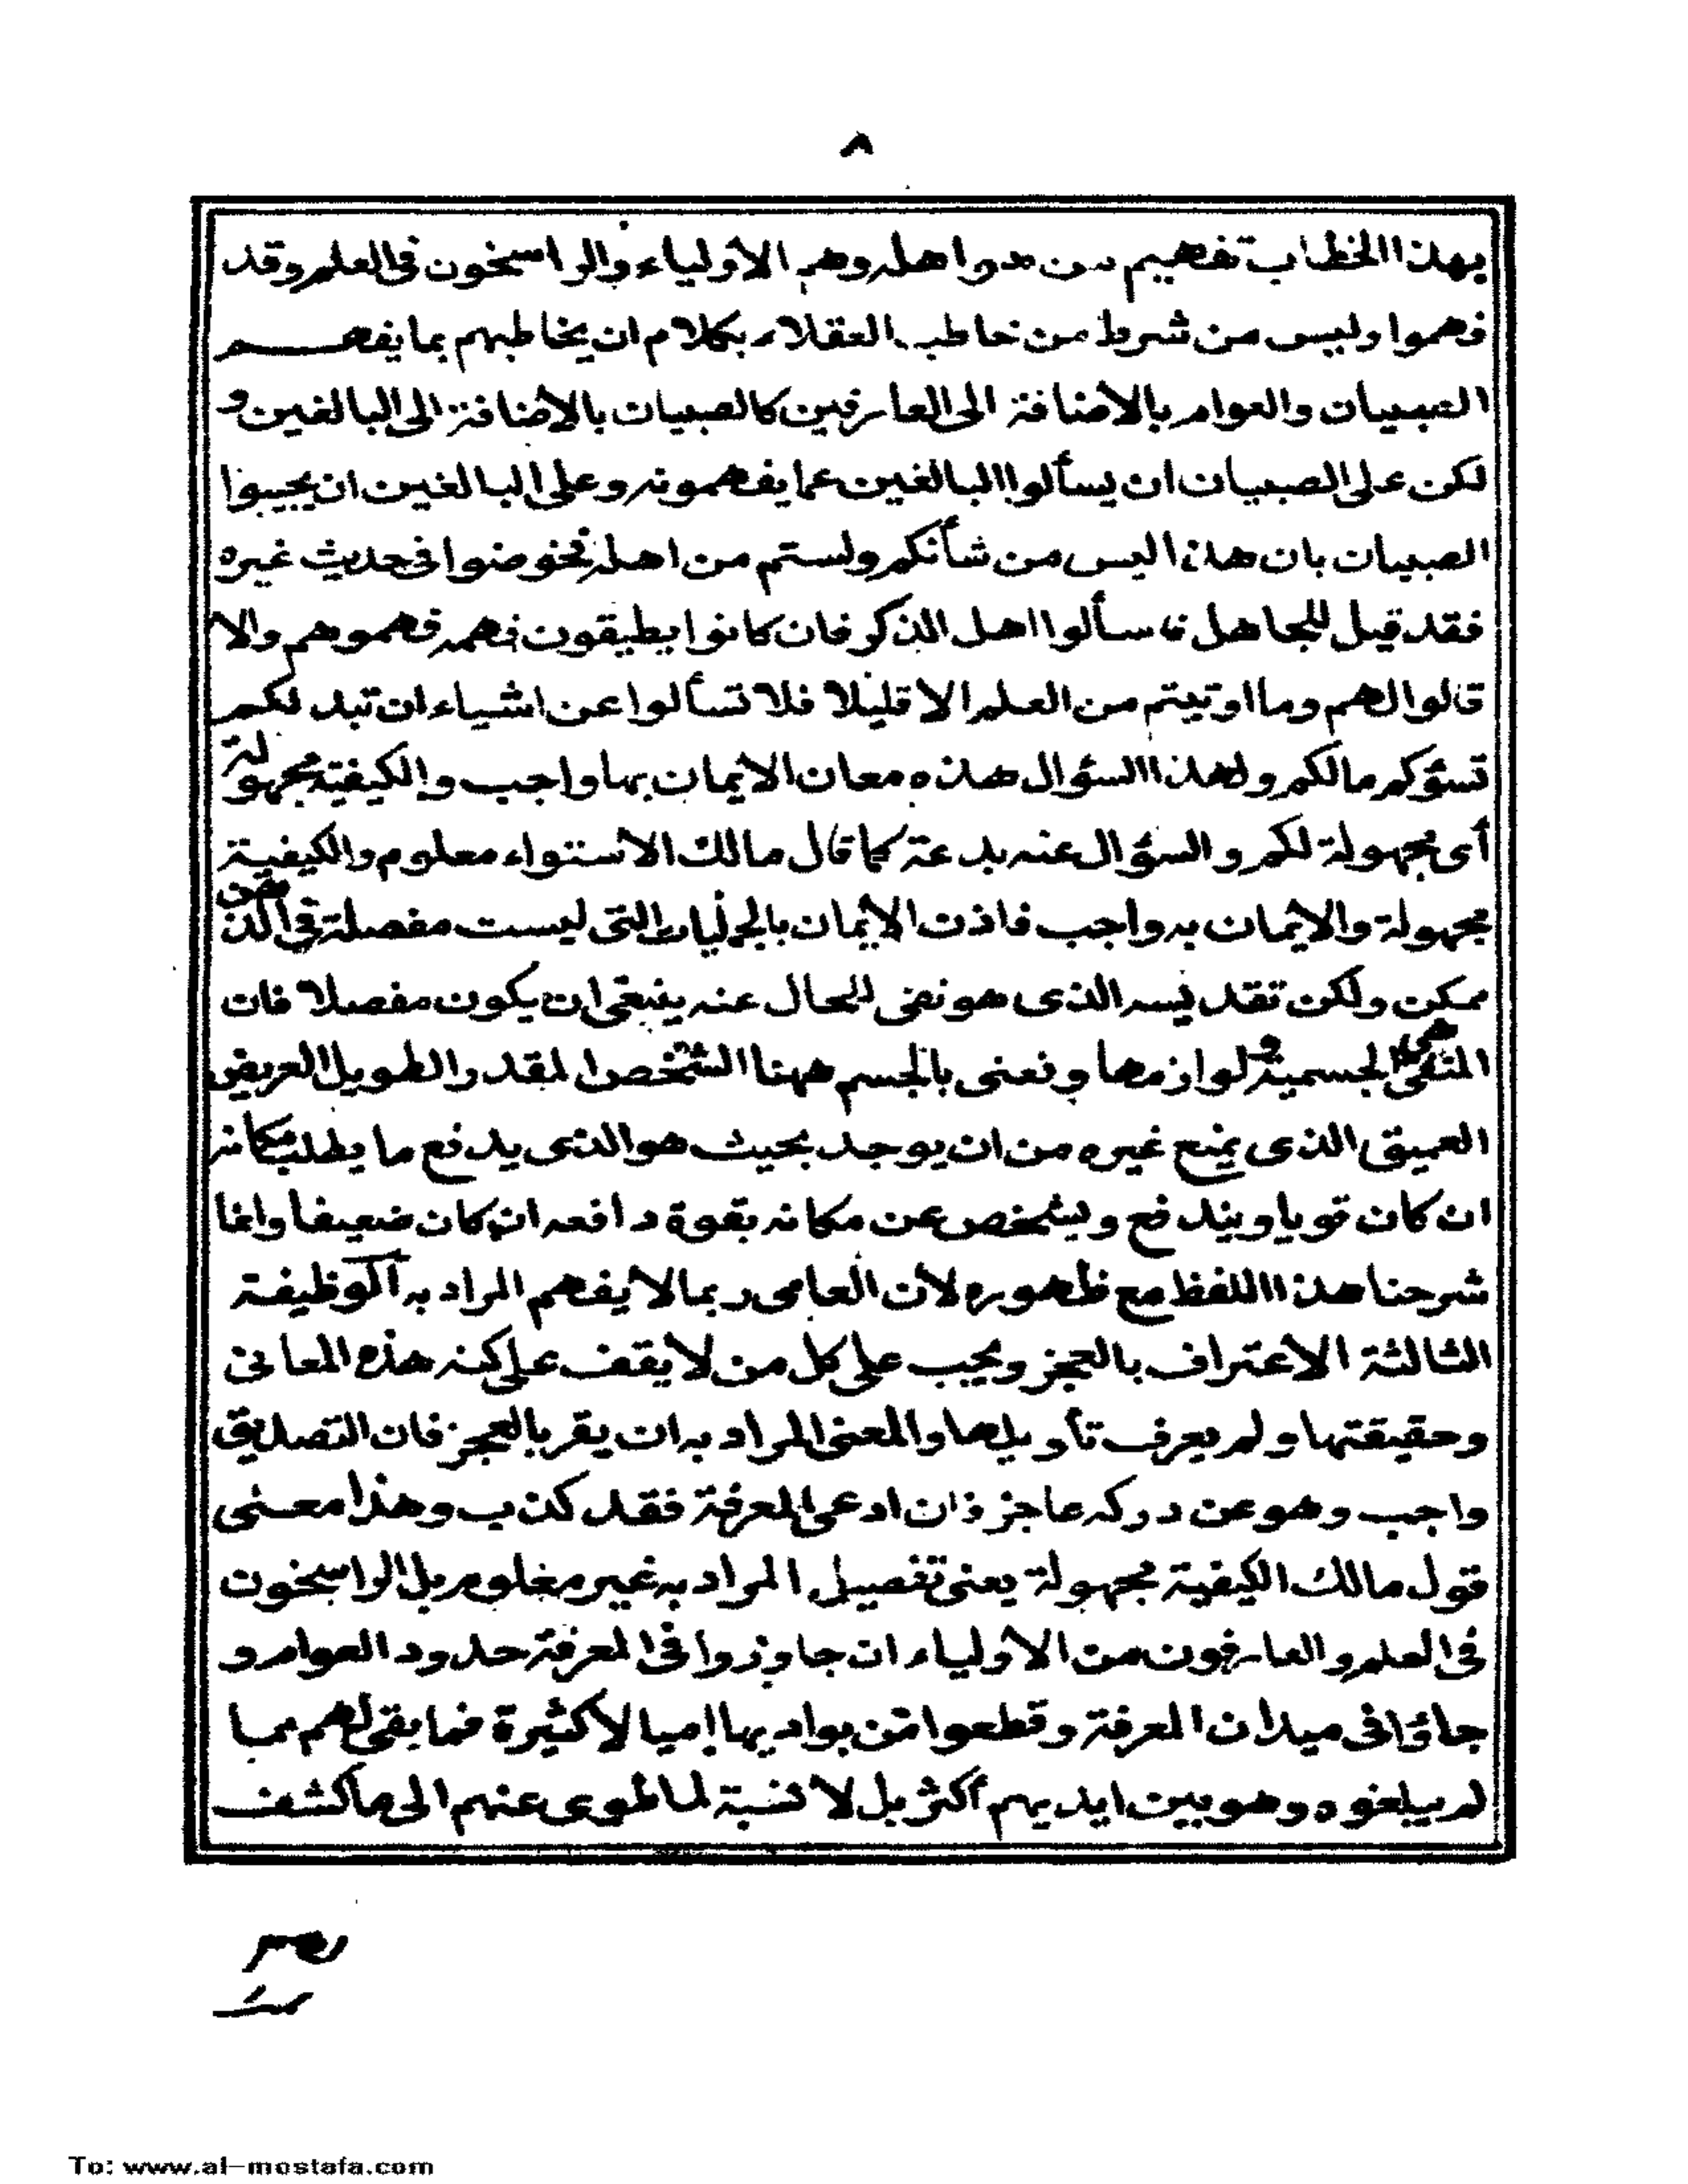 ٨
بهذا الخطاب تفهيم من هو اهله وهم الأولياء والراسخون فى العلم وقد
فهموا وليس من شرط من خاطب العقلاء بكلام ان يخاطبهم بما يفهم
الصبيان والعوام بالأضافة الى العارفين كالصبيان بالأضافة الى البالغين و
لكن على الصبيان ان يسألوا البالغين عما يفهمونه وعلى البالغين ان يجيبوا
الصبيان بان هذا ليس من شأنكم ولستم من اهله فخوضوا فى حديث غيره
فقد قيل للجاهل فاسألوا اهل الذكر فان كانوا يطيقون فهمه فهموهم والا
قالوا لهم وما اوتيتم من العلم الا قليلا فلا تسألوا عن اشياء ان تبد لكم
تسؤكم مالكم ولهذا السؤال هذه معان الايمان بها واجب والكيفية مجهولة
أى مجهولة لكم والسؤال عنه بدعة كما قال مالك الاستواء معلوم والكيفية
مجهولة والايمان به واجب فاذن الايمان بالجمليات التى ليست مفصلة فى الذهن
ممكن ولكن تقديسه الذى هو نفى المحال عنه ينبغى ان يكون مفصلا فان
المنفى هى الجسمية و لوازمها ونعنى بالجسم ههنا الشخص المقدر الطويل العريض
العميق الذى يمنع غيره من ان يوجد بحيث هو الذى يدفع ما يطلب مكانه
ان كان قويا ويندفع ويشخص عن مكانه بقوة دافعه ان كان ضعيفا وانما
شرحنا هذا اللفظ مع ظهوره لأن العامى ربما لا يفهم المراد به الوظيفة
الثالثة الاعتراف بالعجز ويجب على كل من لا يقف على كنه هذه المعانى
وحقيقتها ولم يعرف تأويلها والمعنى المراد به ان يقر بالعجز فان التصديق
واجب وهو عن دركه عاجز فان ادعى المعرفة فقد كذب وهذا معنى
قول مالك الكيفية مجهولة يعنى تفصيل المراد به غير معلوم بل الراسخون
فى العلم والعارفون من الأولياء ان جاوزوا فى المعرفة حدود العوام و
جالوا فى ميدان المعرفة وقطعوا من بواديها اميالا كثيرة فما بقى لهم مما
لم يبلغوه وهو بين ايديهم أكثر بل لا نسبة لما طوى عنهم الى ما كشف
To: www.al-mostafa.com